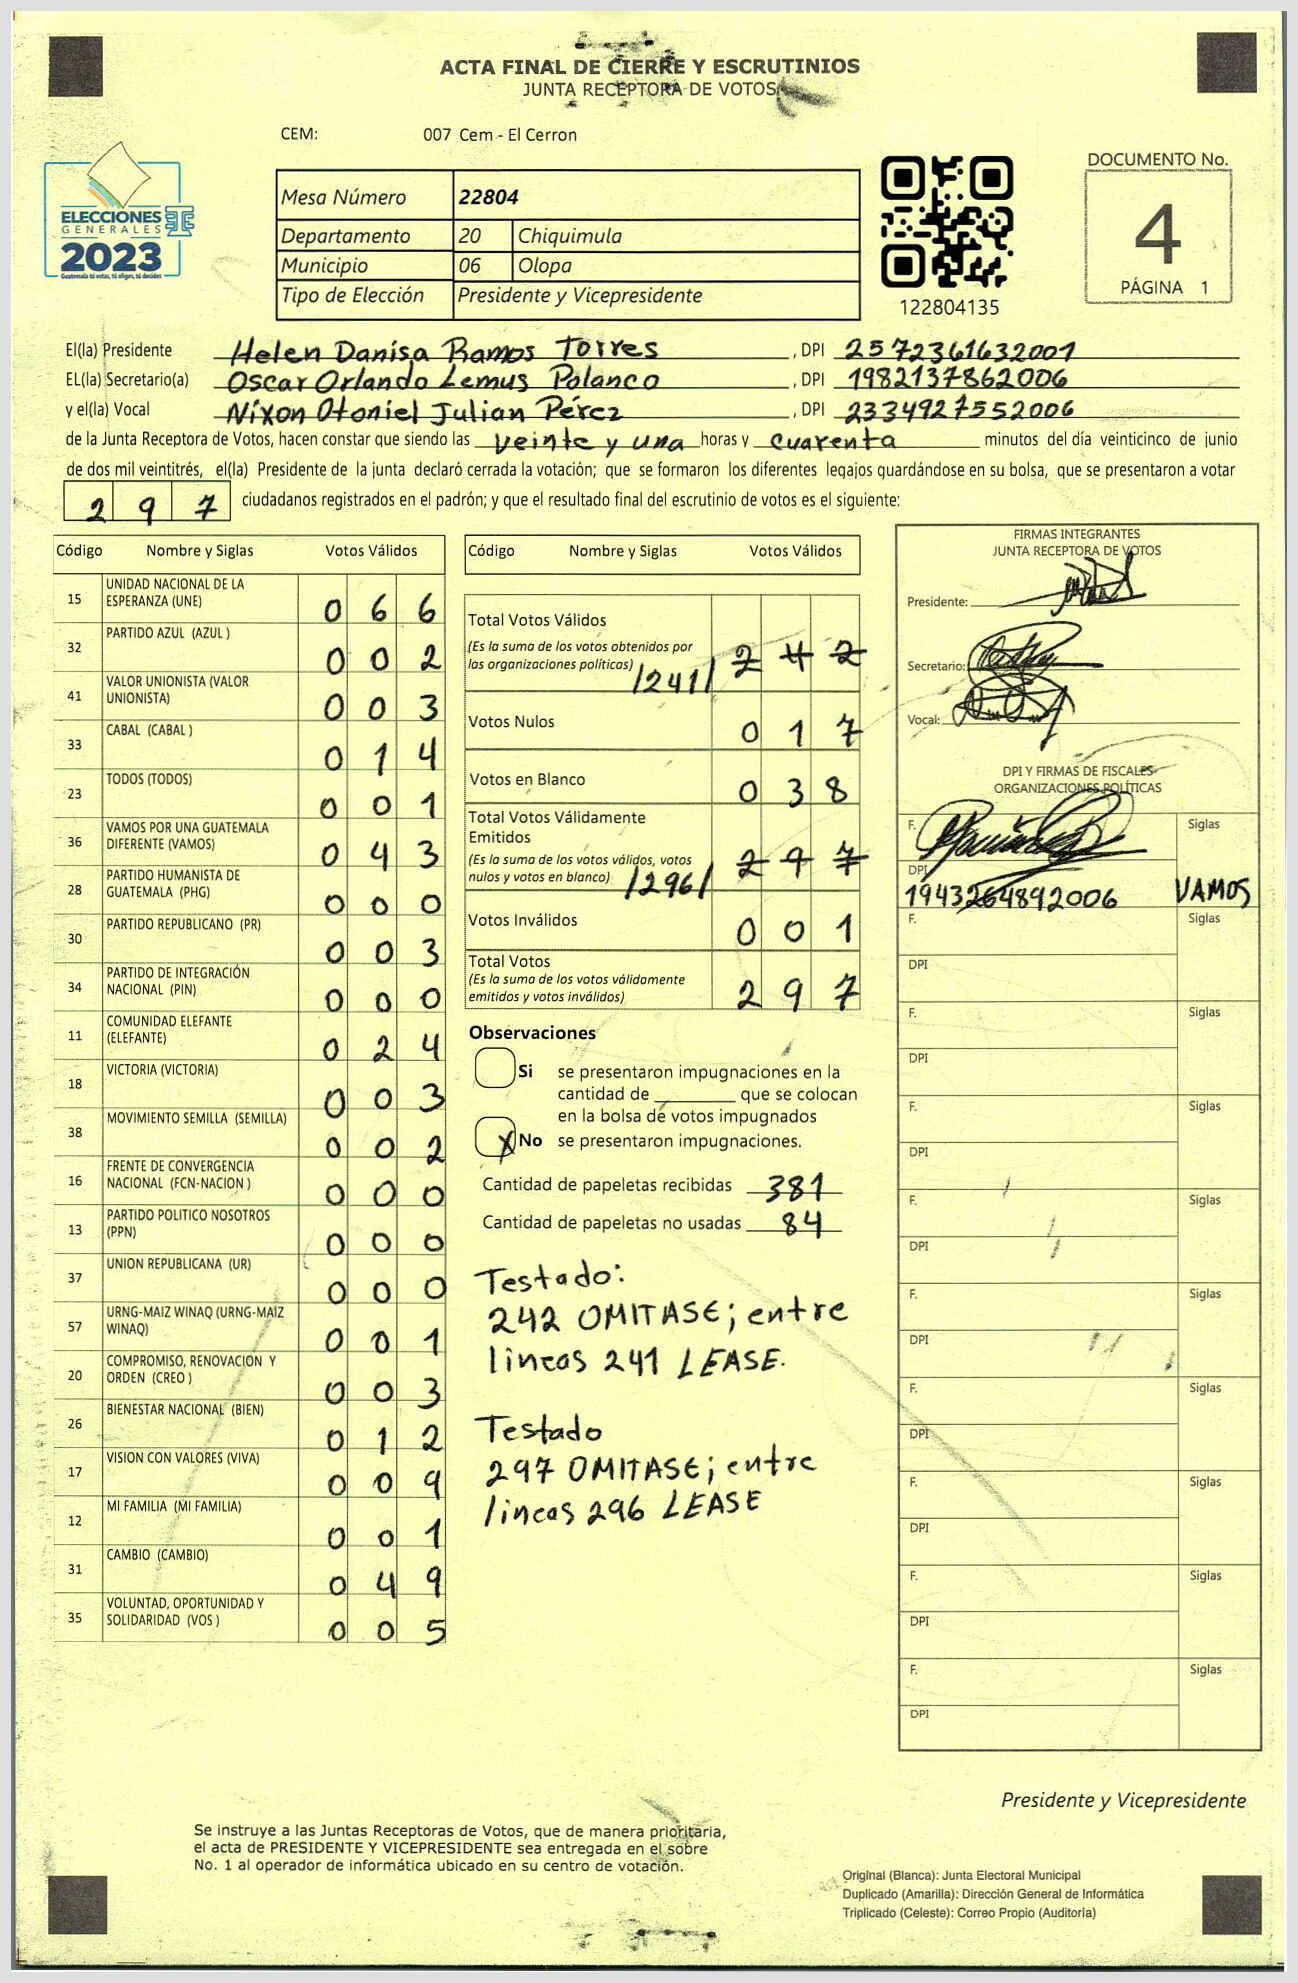 ACTA FINAL DE CIERRE Y ESCRUTINIOS
JUNTA RECEPTORA DE VOTOS
CEM: 007 Cem - El Cerron
ELECCIONES
GENERALES
2023
Guatemala tú votas, tú eliges, tú decides
Mesa Número 22804
Departamento 20 Chiquimula
Municipio 06 Olopa
Tipo de Elección Presidente y Vicepresidente
122804135
DOCUMENTO No.
4
PÁGINA 1
El(la) Presidente Helen Danisa Ramos Torres , DPI 2572361632001
EL(la) Secretario(a) Oscar Orlando Lemus Polanco , DPI 1982137862006
y el(la) Vocal Nixon Otoniel Julian Pérez , DPI 2334927552006
de la Junta Receptora de Votos, hacen constar que siendo las veinte y una horas y cuarenta minutos del día veinticinco de junio
de dos mil veintitrés, el(la) Presidente de la junta declaró cerrada la votación; que se formaron los diferentes legajos quardándose en su bolsa, que se presentaron a votar
297 ciudadanos registrados en el padrón; y que el resultado final del escrutinio de votos es el siguiente:
Código Nombre y Siglas Votos Válidos
15 UNIDAD NACIONAL DE LA
ESPERANZA (UNE) 0 6 6
32 PARTIDO AZUL (AZUL ) 0 0 2
41 VALOR UNIONISTA (VALOR
UNIONISTA) 0 0 3
33 CABAL (CABAL ) 0 1 4
23 TODOS (TODOS) 0 0 1
36 VAMOS POR UNA GUATEMALA
DIFERENTE (VAMOS) 0 4 3
28 PARTIDO HUMANISTA DE
GUATEMALA (PHG) 0 0 0
30 PARTIDO REPUBLICANO (PR) 0 0 3
34 PARTIDO DE INTEGRACIÓN
NACIONAL (PIN) 0 0 0
11 COMUNIDAD ELEFANTE
(ELEFANTE) 0 2 4
18 VICTORIA (VICTORIA) 0 0 3
38 MOVIMIENTO SEMILLA (SEMILLA) 0 0 2
16 FRENTE DE CONVERGENCIA
NACIONAL (FCN-NACION ) 0 0 0
13 PARTIDO POLITICO NOSOTROS
(PPN) 0 0 0
37 UNION REPUBLICANA (UR) 0 0 0
57 URNG-MAIZ WINAQ (URNG-MAIZ
WINAQ) 0 0 1
20 COMPROMISO, RENOVACION Y
ORDEN (CREO ) 0 0 3
26 BIENESTAR NACIONAL (BIEN) 0 1 2
17 VISION CON VALORES (VIVA) 0 0 9
12 MI FAMILIA (MI FAMILIA) 0 0 1
31 CAMBIO (CAMBIO) 0 4 9
35 VOLUNTAD, OPORTUNIDAD Y
SOLIDARIDAD (VOS ) 0 0 5
Código Nombre y Siglas Votos Válidos
Total Votos Válidos
(Es la suma de los votos obtenidos por
las organizaciones políticas) /241/ 2 4 2
Votos Nulos 0 1 7
Votos en Blanco 0 3 8
Total Votos Válidamente
Emitidos
(Es la suma de los votos válidos, votos
nulos y votos en blanco) /296/ 2 9 7
Votos Inválidos 0 0 1
Total Votos
(Es la suma de los votos válidamente
emitidos y votos inválidos) 2 9 7
Observaciones
Si se presentaron impugnaciones en la
cantidad de ________ que se colocan
en la bolsa de votos impugnados
X No se presentaron impugnaciones.
Cantidad de papeletas recibidas 381
Cantidad de papeletas no usadas 84
Testado:
242 OMITASE; entre
lineas 241 LEASE.
Testado
297 OMITASE; entre
lineas 296 LEASE
FIRMAS INTEGRANTES
JUNTA RECEPTORA DE VOTOS
Presidente:
Secretario:
Vocal:
DPI Y FIRMAS DE FISCALES
ORGANIZACIONES POLÍTICAS
F. Siglas
DPI 1943264892006 VAMOS
F. Siglas
DPI
F. Siglas
DPI
F. Siglas
DPI
F. Siglas
DPI
F. Siglas
DPI
F. Siglas
DPI
F. Siglas
DPI
F. Siglas
DPI
F. Siglas
DPI
Presidente y Vicepresidente
Se instruye a las Juntas Receptoras de Votos, que de manera prioritaria,
el acta de PRESIDENTE Y VICEPRESIDENTE sea entregada en el sobre
No. 1 al operador de informática ubicado en su centro de votación.
Original (Blanca): Junta Electoral Municipal
Duplicado (Amarilla): Dirección General de Informática
Triplicado (Celeste): Correo Propio (Auditoría)